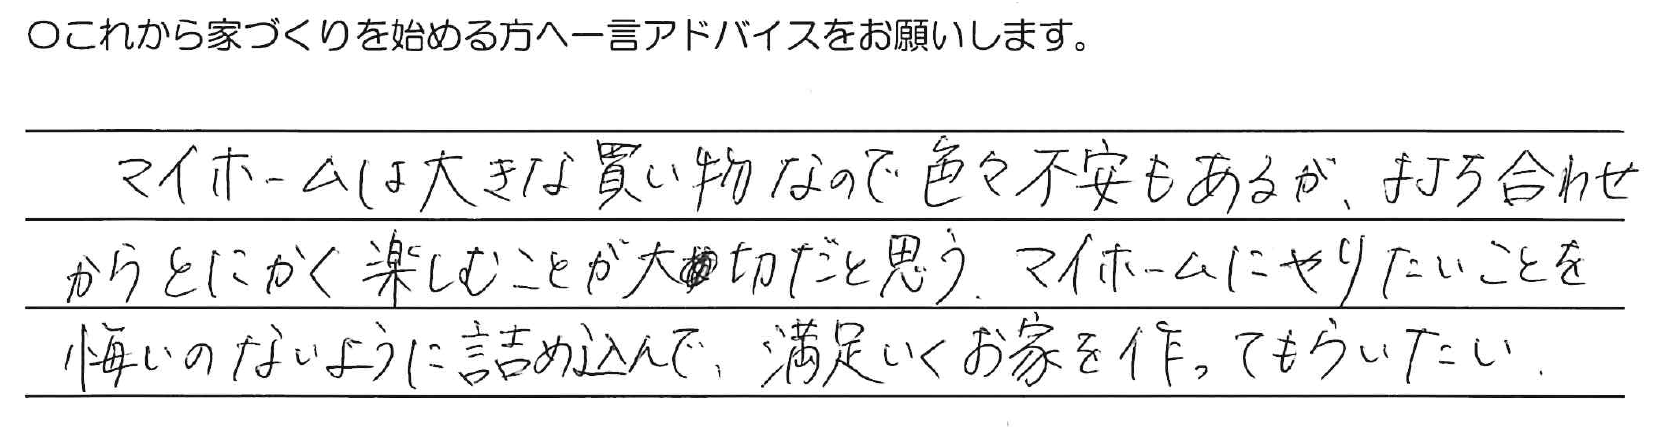 〇これから家づくりを始める方へ一言アドバイスをお願いします。
マイホームは大きな買い物なので色々不安もあるが、打ち合わせ
からとにかく楽しむことが大切だと思う。マイホームにやりたいことを
悔いのないように詰め込んで、満足いくお家を作ってもらいたい。